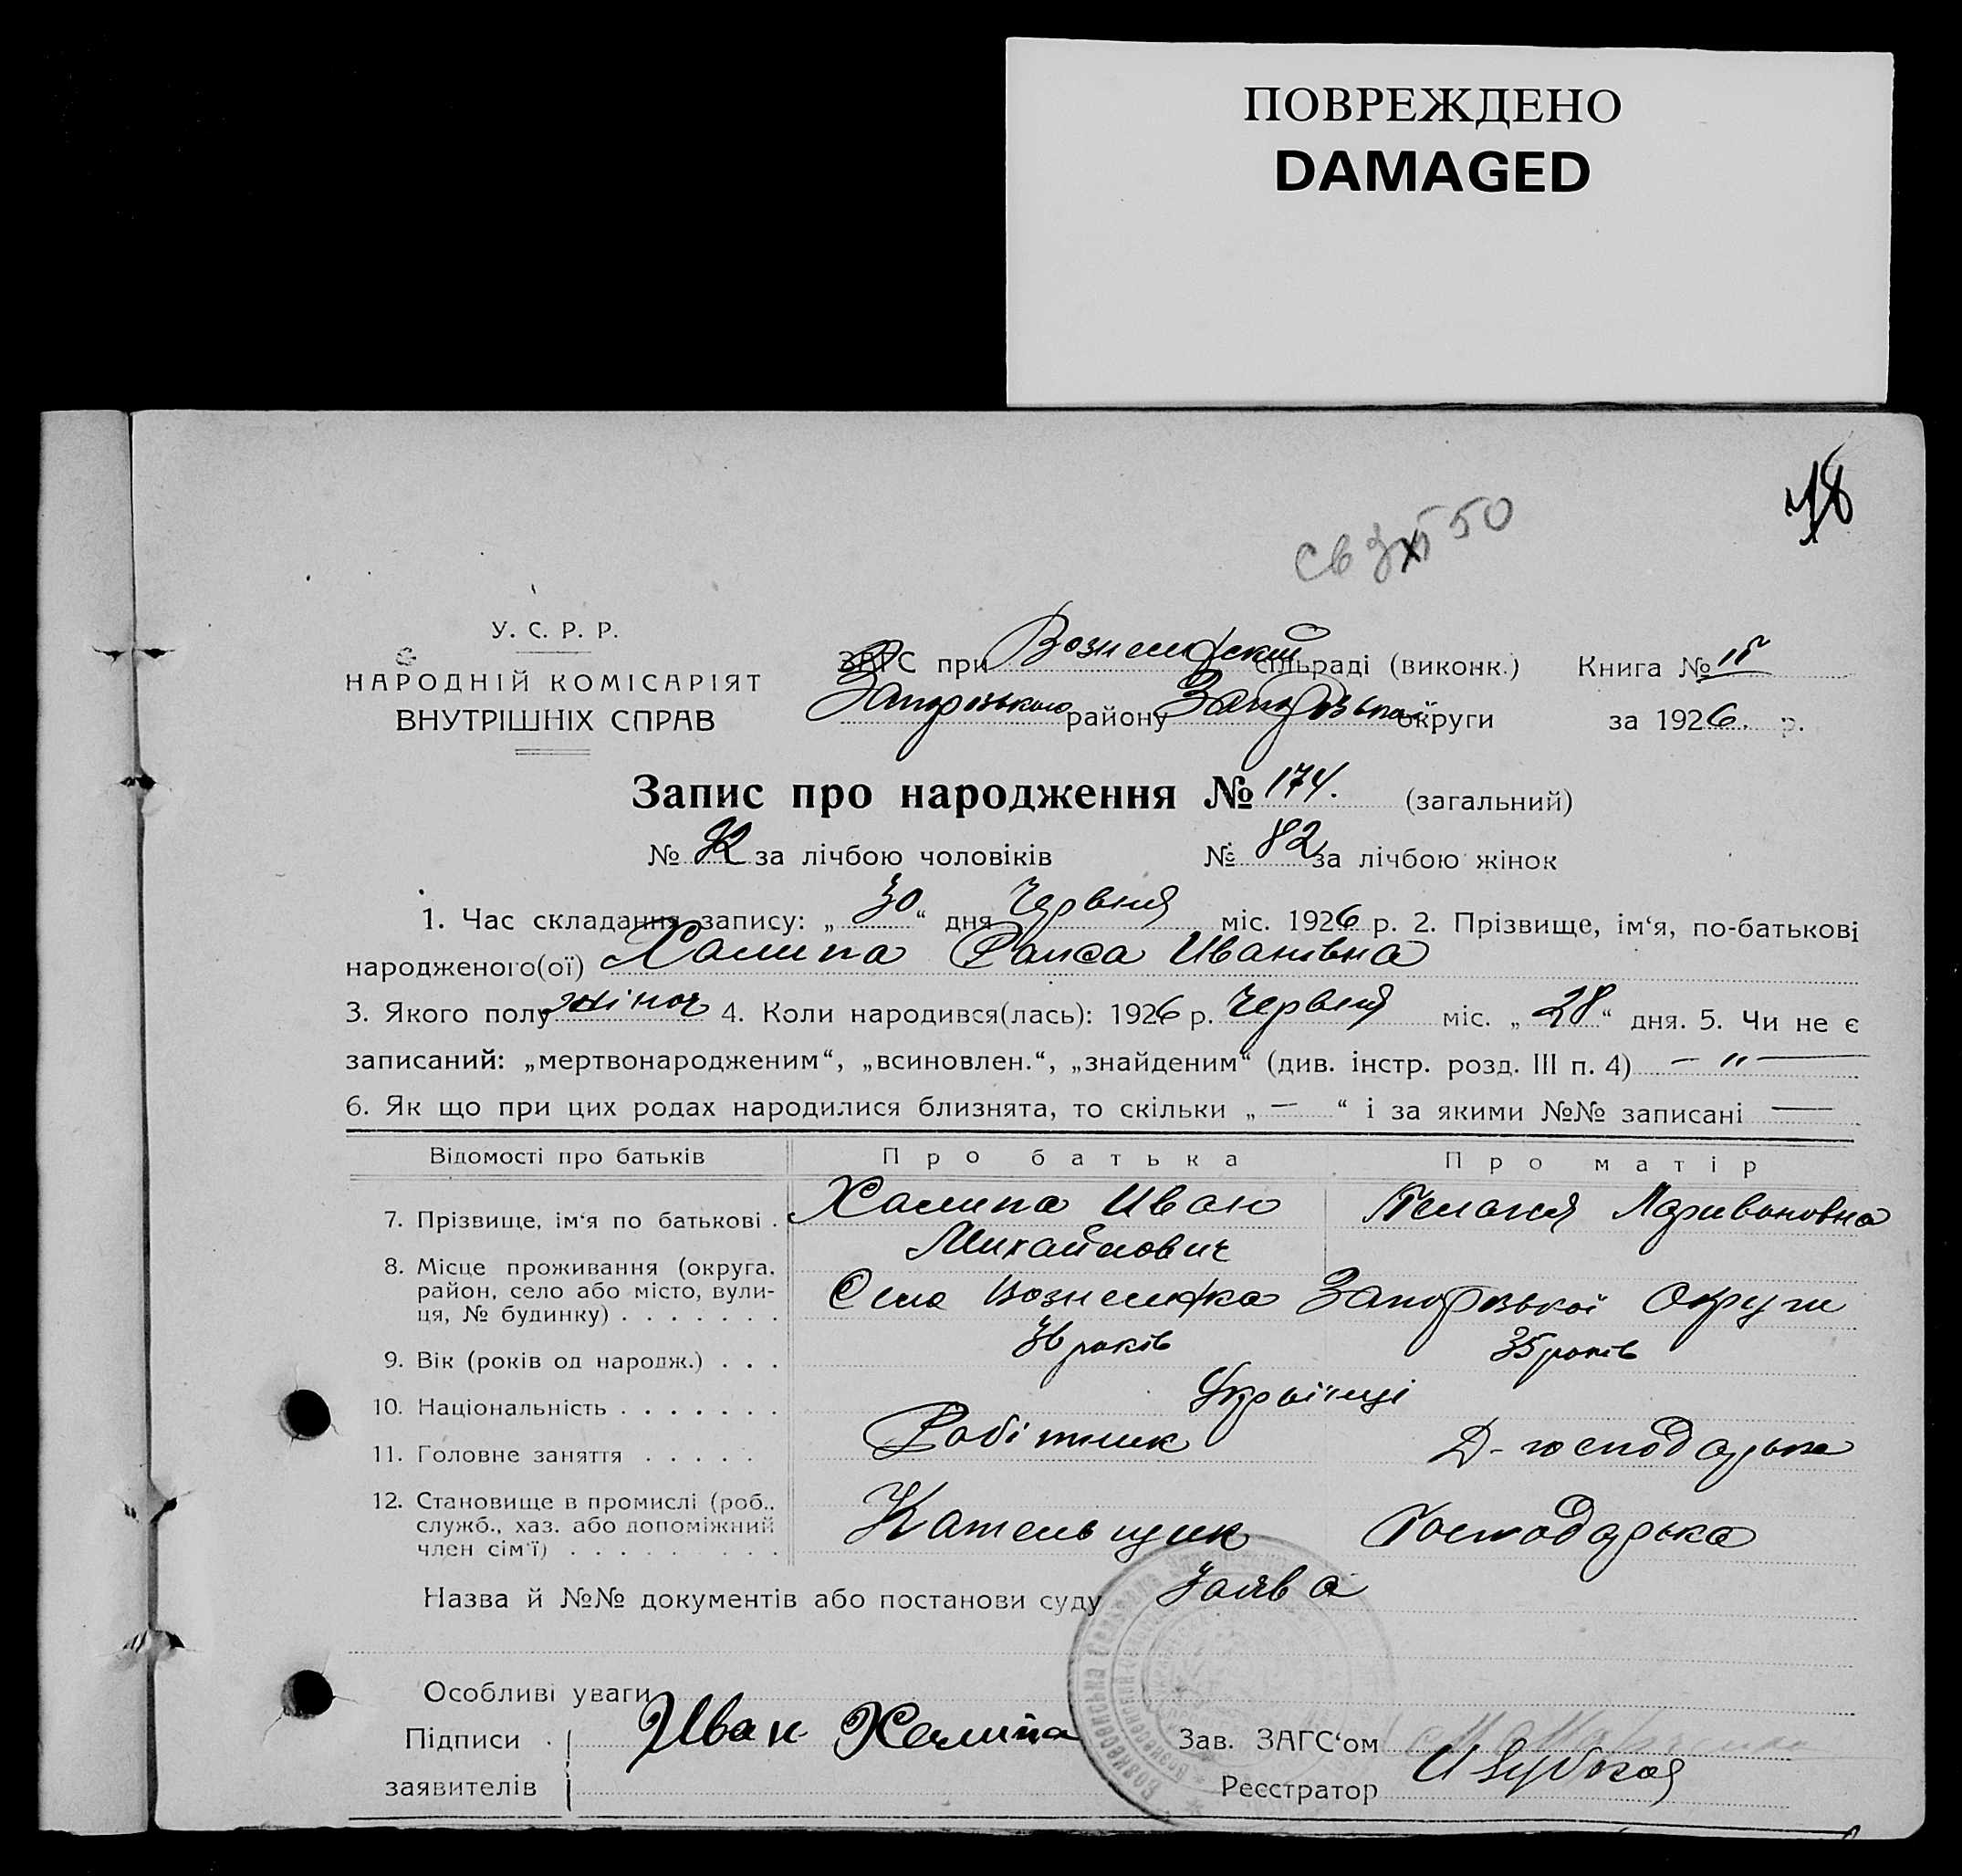 ПОВРЕЖДЕНО
DAMAGED
18
св 3 XI 50
У. С. Р. Р.
НАРОДНІЙ КОМІСАРІЯТ
ВНУТРІШНІХ СПРАВ
ЗАГС при Вознесенській сільраді (виконк.) Книга №
Запорізького району Запорізької округи за 1926 р.
Запис про народження № 174. (загальний)
№ 92 за лічбою чоловіків № 82 за лічбою жінок
1. Час складання запису: „30“ дня Червня міс. 1926 р. 2. Прізвище, ім‘я, по-батькові
народженого(ої) Халипа Раиса Иванівна
3. Якого полу жіноч 4. Коли народився(лась): 1926 р. Червня міс. „28“ дня. 5. Чи не є
записаний: „мертвонародженим“, „всиновлен.“, „знайденим“ (див. інстр. розд. III п. 4) — " —
6. Як що при цих родах народилися близнята, то скільки „—“ і за якими №№ записані —
Відомості про батьків Про батька Про матір
7. Прізвище, ім‘я по батькові . Халипа Иван Пелагея Ларивоновна
Михайлович
8. Місце проживання (округа,
район, село або місто, вули-
ця, № будинку) . . . . . . . Село Вознесенка Запорізької Округи
9. Вік (років од народж.) . . . 36 років 35 років
10. Національність . . . . . . . Українці
11. Головне заняття . . . . . Робітник Д-господарька
12. Становище в промислі (роб.,
служб., хаз. або допоміжний
член сім‘ї) . . . . . . . . . Котельщик Господарька
Назва й №№ документів або постанови суду Заява
Особливі уваги
Підписи Иван Халипа Зав. ЗАГС‘ом
заявителів Реєстратор